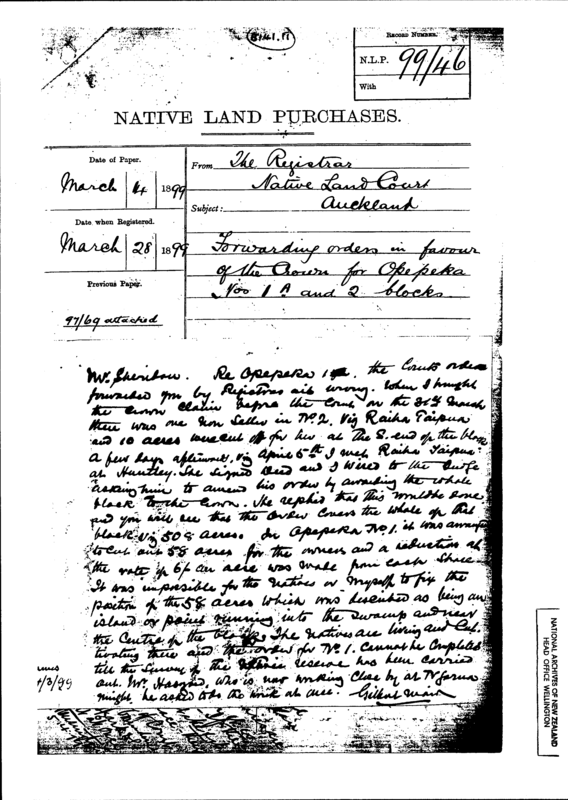 8141.11
RECORD NUMBER.
N.L.P. 99/46
With
NATIVE LAND PURCHASES.
Date of Paper.
March 14 1899
Date when Registered.
March 28 1899
Previous Paper.
97/69 attached
From The Registrar
Native Land Court
Auckland
Subject:
Forwarding orders in favour
of the Crown for Opepeka
Nos 1A and 2 blocks.
Mr. Sheridan. Re Opepeka the Courts orders
forwarded you by Registrar are wrong. When I brought
the Crown Claim before the Court on the 31st March
there was one Non Seller in No 2. Viz Raiha Taipua
and 10 acres were cut off for her at the S. end of the block
A few days afterward, Viz April 5th I met Raiha Taipua
at Huntly. She signed Deed and I wired to the Judge
asking him to amend his order by awarding the whole
block to the Crown. He replied that this would be done
and you will see that the Order covers the whole of that
block Viz 508 acres. In Opepeka No 1. it was arranged
to cut out 58 acres for the owners and a reduction at
the rate of 6/ an acre was made from each Share
It was impossible for the Natives or Myself to fix the
position of the 58 acres which was described as being an
island or point running into the swamp and near
the Centre of the block. The Natives are living and Cul-
tivating there and the order for No 1. Cannot be Completed
till the Survey of the reserve has been carried
out. Mr. who is now working Close by at
might be asked to do the work at once. Gilbert Mair
/3/99
NATIONAL ARCHIVES OF NEW ZEALAND
HEAD OFFICE WELLINGTON